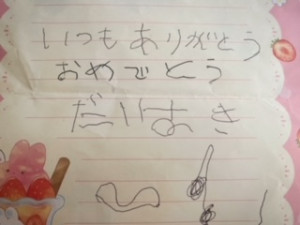 いつもありがとう
おめでとう
だいすき